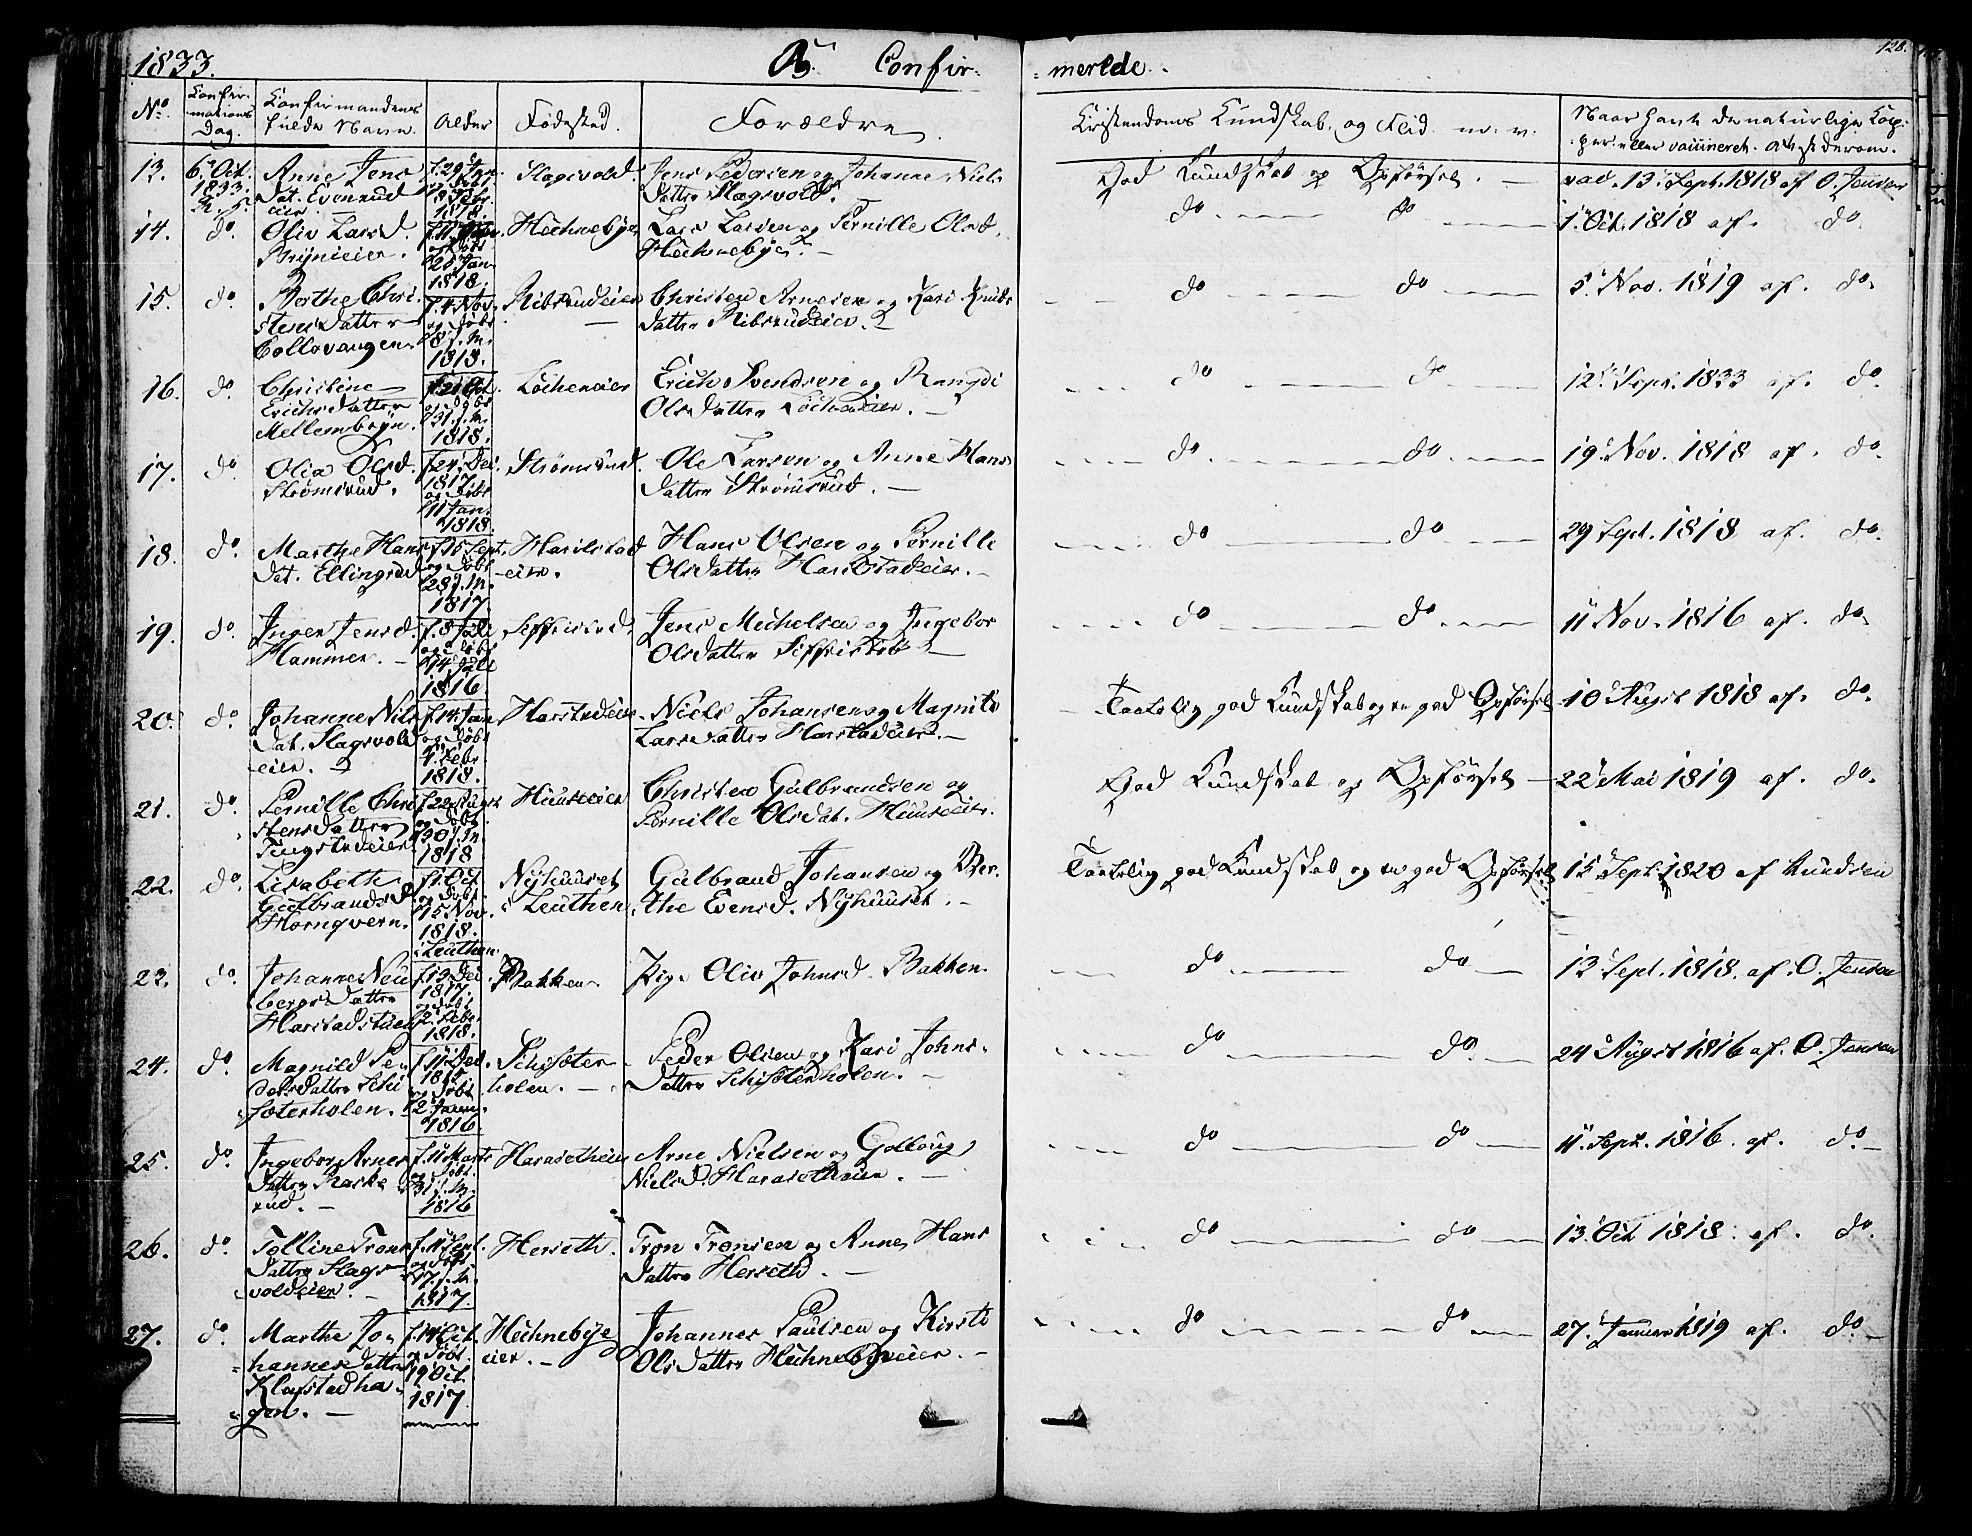 1833.
Confir-
-merede.
128.
No.
Confer-
mations
Dag.
Confirmandenes
fulde Navn.
Alder
Fødested.
Forældre
Cristendoms Kundskab, og Flid. m. v.
Naar havt de naturlige Kop-
per eller vaccineret. Attest derom.
13.
6. Oct.
1833.
Anne Jens
Dat. Evenrud
eier
f. 29 Jan.
1818.
Slagsvold.
Jens Pedersen og Johanne Niels
Datter Slagsvold.
God Kundskab og Opførsel.
vac. 13 Sept. 1818 af O. Jensen
14.
do.
Oliv Larsd.
Bryneier.
25 Jan
1818.
Hechnebye
Lars Larsen og Pernille Olsd.
Hechnebye.
do
do
1. Oct. 1818 af. do
15.
do.
Berthe Chri
stensdatter
f. 4. Nov.
og døbt
8. s. M.
1818.
Ribsrudeier
Christen Arnesen og Kari Knuds
datter Ribsrudeier.
do
do
5. Nov. 1819 af. do.
16.
do.
Christine
Erichsdatter
Mellembryn.
31. s. M.
1818.
Løcheneier
Erich Svendsen og Rangdi
Olsdatter Løcheneier.
do
do
12. Sept. 1833 af. do.
17.
do
Olia Olsd.
Strømsrud.
f. 24. Dec.
1817.
og døbt
11 Jan.
1818.
Strømsrud.
Ole Larsen og Anne Hans
datter Strømsrud.
do.
do.
19. Nov. 1818 af. do.
18.
do.
Marthe Hans
dat. Ellingsrud
f. 15 Sept.
og døbt
28 s. M.
1817.
Harilstad
eier.
Hans Olsen og Pernille
Olsdatter Harilstadeier.
do
do
29 Sept. 1818 af. do.
19.
do.
Inger Jensd.
Hammer.
f. 8 Juli
og døbt
14. Juli
1816.
Siffristad.
Jens Michelsen og Ingebor
Olsdatter Siffristad
do
do
11 Nov. 1816 af. do.
20.
do.
Johanne Nils
dat. Slagsvold
eier.
f. 14. Jan
og døbt
1. Febr.
1818.
Harstadeier
Niels Johansen og Magnild
Larsdatter Harstadeier.
Taalelig god Kundskab og en god Opførsel
10 August 1818 af. do.
21.
do.
Pernille Chri
stensdatter
Tingstadeier
f. 22 August
og døbt
30 s. M.
1818
Huuseeier
Christen Gulbrandsen og
Pernille Olsdat. Huuseeier.
God Kundskab og Opførsel
22 Mai 1819 af. do.
22.
do.
Lisabeth
Gulbrandsd.
Hornqvern.
f. 1. Oct
og døbt
15 Nov.
1818.
i Leuthen.
Nyhuuset
i Leuthen.
Gulbrand Johansen og Ber-
the Evensd. Nyhuuset.
Taalelig god Kundskab og en god Opførsel
15 Sept. 1820 af Knudsen
23.
do.
Johanne Neu
bergsdatter
Harstadstuen
f. 19. Dec.
1817.
og døbt
2. Febr.
1818.
Bakken.
Pige Oliv Johnsd. Bakken.
do
do
13 Sept. 1818. af. O. Jensen
24.
do.
Magnild Pe-
dersdatter Schi
søterholen.
f. 11. Dec.
1815
og døbt
2 Januar.
1816.
Schisøter
holen.
Peder Olsen og Kari Johns-
datter Schisøterholen.
do
do.
24 August 1816 af. O. Jensen
25.
do.
Ingebor Arnes
datter Raske
rud.
f. 11 Marts
og døbt.
31. s. M.
1816
Harasetheier
Arne Nielsen og Golbour
Nielsd. Harasetheier.
do
do
11. Sept. 1816. af. do.
26.
do.
Tolline Trons
datter Slags
voldeier.
f. 11 Sept.
og døbt
17. s. M.
1817.
Herseth.
Tron Tronsen og Anne Hans
datter Herseth.
do
do
13. Oct 1818. af. do.
27.
do.
Marthe Jo-
hannesdatter
Klafstadha-
gen.
f. 14 Oct.
og døbt.
19 Oct.
1817.
Hechnebye
eier.
Johannes Paulsen og Kirsti
Olsdatter Hechnebyeeier.
do
do
27. Januar 1819 af. do.